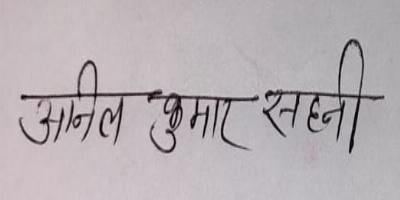 अनिल कुमार सहनी